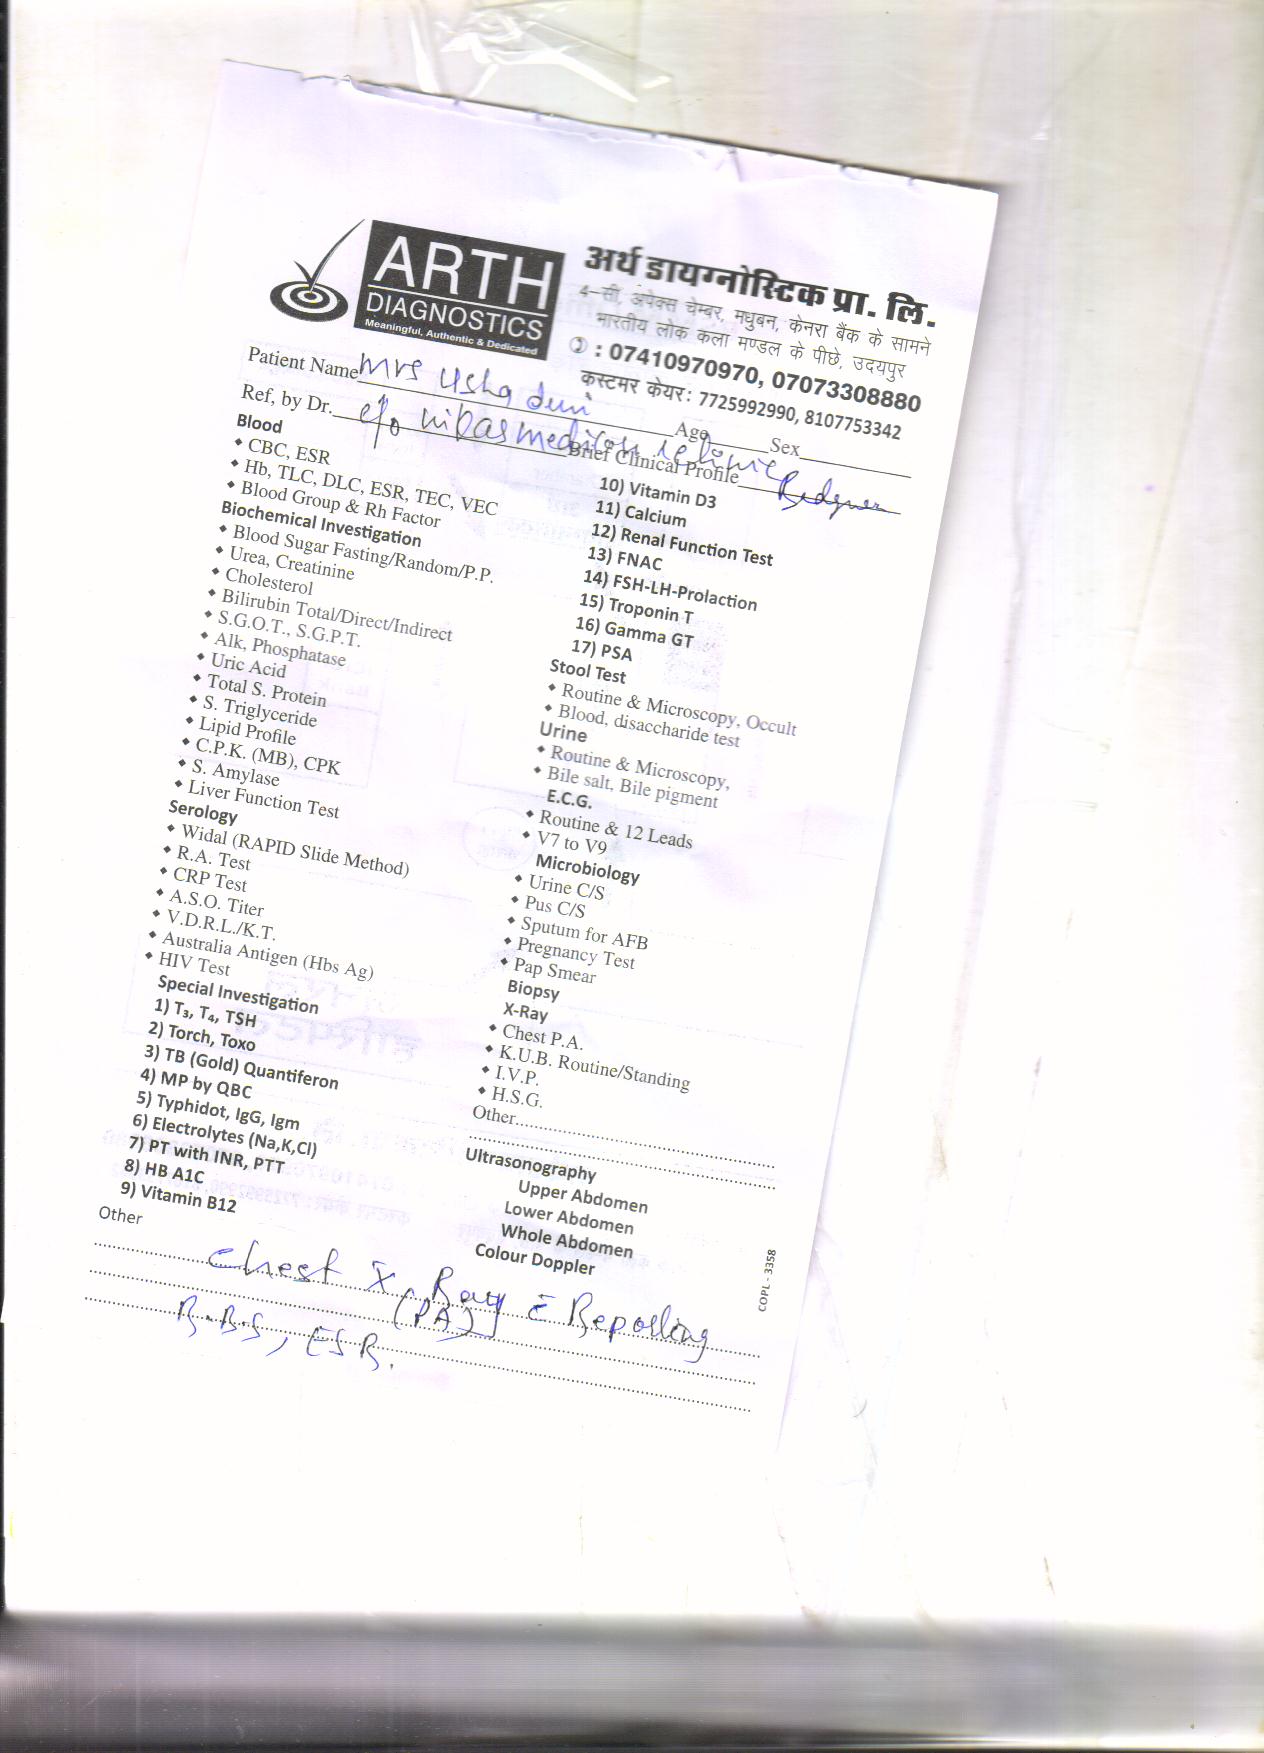 ARTH
DIAGNOSTICS
Meaningful, Authentic & Dedicated
अर्थ डायग्नोस्टिक प्रा. लि.
4-सी, अपेक्स चेम्बर, मधुबन, केनरा बैंक के सामने
भारतीय लोक कला मण्डल के पीछे, उदयपुर
: 07410970970, 07073308880
कस्टमर केयर: 7725992990, 8107753342
Patient Name Mrs Usha
Age Sex
Ref, by Dr.
Brief Clinical Profile
Blood
CBC, ESR
Hb, TLC, DLC, ESR, TEC, VEC
Blood Group & Rh Factor
Biochemical Investigation
Blood Sugar Fasting/Random/P.P.
Urea, Creatinine
Cholesterol
Bilirubin Total/Direct/Indirect
S.G.O.T., S.G.P.T.
Alk, Phosphatase
Uric Acid
Total S. Protein
S. Triglyceride
Lipid Profile
C.P.K. (MB), CPK
S. Amylase
Liver Function Test
Serology
Widal (RAPID Slide Method)
R.A. Test
CRP Test
A.S.O. Titer
V.D.R.L./K.T.
Australia Antigen (Hbs Ag)
HIV Test
Special Investigation
1) T₃, T₄, TSH
2) Torch, Toxo
3) TB (Gold) Quantiferon
4) MP by QBC
5) Typhidot, IgG, Igm
6) Electrolytes (Na,K,Cl)
7) PT with INR, PTT
8) HB A1C
9) Vitamin B12
10) Vitamin D3
11) Calcium
12) Renal Function Test
13) FNAC
14) FSH-LH-Prolaction
15) Troponin T
16) Gamma GT
17) PSA
Stool Test
Routine & Microscopy, Occult
Blood, disaccharide test
Urine
Routine & Microscopy,
Bile salt, Bile pigment
E.C.G.
Routine & 12 Leads
V7 to V9
Microbiology
Urine C/S
Pus C/S
Sputum for AFB
Pregnancy Test
Pap Smear
Biopsy
X-Ray
Chest P.A.
K.U.B. Routine/Standing
I.V.P.
H.S.G.
Other
Ultrasonography
Upper Abdomen
Lower Abdomen
Whole Abdomen
Colour Doppler
COPL - 3358
Other
Chest X. Ray c̄ Reporting
(PA)
R.B.S, ESR.